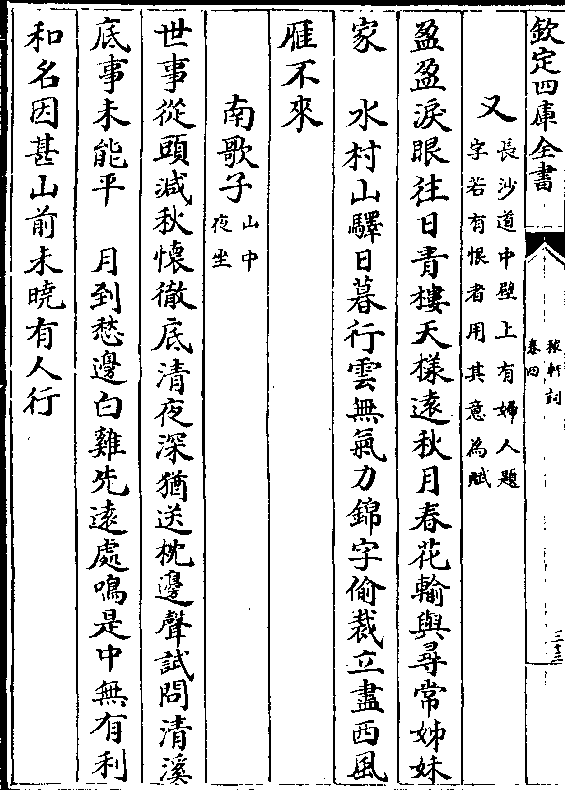 欽定四庫全書
稼軒詞
卷四
三十三
又
長沙道中壁上有婦人題
字若有恨者用其意為賦
盈盈淚眼往日青樓天樣遠秋月春花輸與尋常姊妹
家　水村山驛日暮行雲無氣力錦字偷裁立盡西風
雁不來
南歌子
山中
夜坐
世事從頭減秋懐徹底清夜深猶送枕邊聲試問清溪
底事未能平　月到愁邊白雞先逺處鳴是中無有利
和名因甚山前未曉有人行